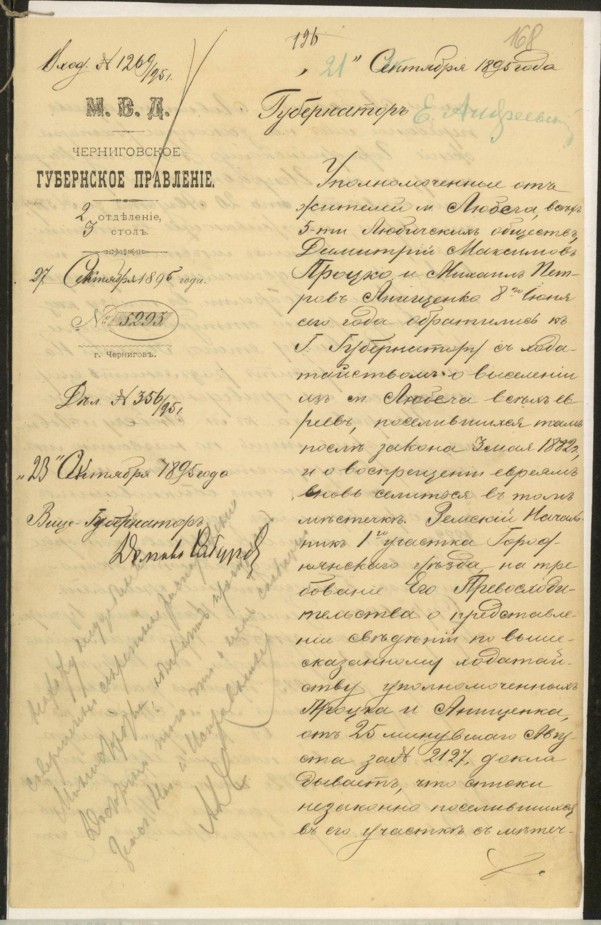 196
168
Вход. № 1269/95 г.
М. В. Д.
ЧЕРНИГОВСКОЕ
ГУБЕРНСКОЕ ПРАВЛЕНІЕ.
2 отдѣленіе,
3 столъ.
27 Сентября 1895 года.
№ 5295
г. Черниговъ.
Дѣл. № 356/95 г.
„23" Сентября 1895 года
Вице-Губернаторъ
„21" Сентября 1895 года
Губернаторъ Е. Андреевскій
Уполномоченные отъ
жителей м. Любеча, всѣхъ
5-ти Любичскихъ обществъ,
Димитрій Максимовъ
Процко и Михаилъ Пет-
ровъ Анищенко 8го Іюня
сего года обратились къ
Г. Губернатору съ хода-
тайствомъ о выселеніи
изъ м. Любеча всѣхъ ев-
реевъ, поселившихся тамъ
послѣ закона 3 мая 1882 г.,
и о воспрещеніи евреямъ
вновь селиться въ томъ
мѣстечкѣ. Земскій Началь-
никъ 1го участка Город-
нянскаго уѣзда, на тре-
бованіе Его Превосходи-
тельства о представле-
ніи свѣдѣній по выше-
сказанному ходатай-
ству уполномоченныхъ
Процка и Анищенка,
отъ 25 минувшаго Авгу-
ста за № 2127, докла-
дываетъ, что списки
незаконно поселившихся
въ его участкѣ съ мѣстеч-